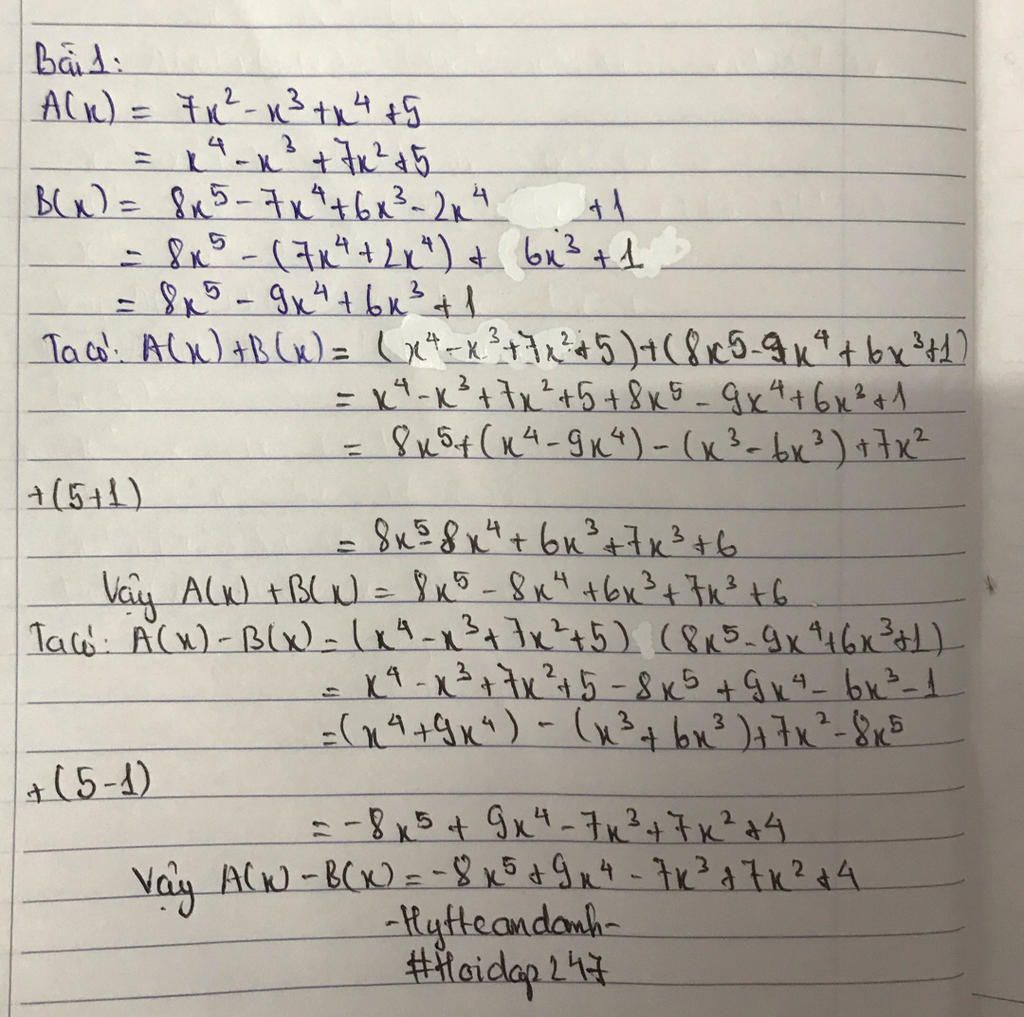 Bài 1:
A(x) = 7x² - x³ + x⁴ + 5
= x⁴ - x³ + 7x² + 5
B(x) = 8x⁵ - 7x⁴ + 6x³ - 2x⁴ + 1
= 8x⁵ - (7x⁴ + 2x⁴) + 6x³ + 1
= 8x⁵ - 9x⁴ + 6x³ + 1
Ta có: A(x) + B(x) = (x⁴ - x³ + 7x² + 5) + (8x5 - 9x⁴ + 6x³ + 1)
= x⁴ - x³ + 7x² + 5 + 8x⁵ - 9x⁴ + 6x³ + 1
= 8x⁵ + (x⁴ - 9x⁴) - (x³ - 6x³) + 7x²
+ (5 + 1)
= 8x⁵ - 8x⁴ + 6x³ + 7x³ + 6
Vậy A(x) + B(x) = 8x⁵ - 8x⁴ + 6x³ + 7x³ + 6
Ta có: A(x) - B(x) = (x⁴ - x³ + 7x² + 5) (8x⁵ - 9x⁴ + 6x³ + 1)
= x⁴ - x³ + 7x² + 5 - 8x⁵ + 9x⁴ - 6x³ - 1
= (x⁴ + 9x⁴) - (x³ + 6x³) + 7x² - 8x⁵
+ (5 - 1)
= -8x⁵ + 9x⁴ - 7x³ + 7x² + 4
Vậy A(x) - B(x) = -8x⁵ + 9x⁴ - 7x³ + 7x² + 4
-Hytteandanh-
#Hoidap247